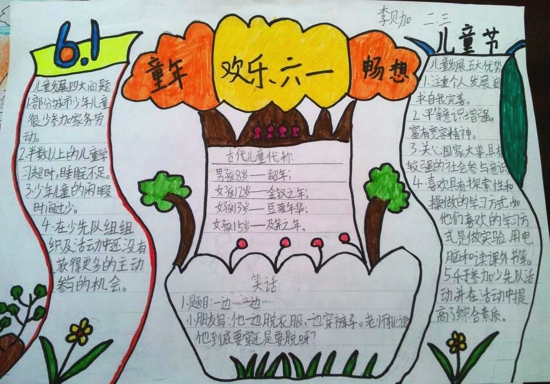 李贝加 二、三
6.1
童年
欢乐、六一
畅想
儿童节
儿童发展四大问题
1.部分城市少年儿童
很少参加家务劳
动。
2.半数以上的儿童学
习超时,睡眠不足。
3.少年儿童的闲暇
时间过少。
4.在少先队组组
织及活动中还没有
获得更多的主动
参与的机会。
古代儿童代称
男孩8岁——龆年;
女孩12岁——金钗之年;
女孩13岁——豆蔻年华;
女孩15岁——及笄之年。
笑话
1.题目:一边……一边……
小朋友写:他一边脱衣服,一边穿裤子。老师批语:
他到底要穿还是要脱呀?
儿童发展五大优势
1.注重个人发展,追
求自我完善。
2.平等意识增强,
富有宽容精神。
3.关心国家大事,具有
较强的社会参与意识
4.喜欢具有探索性和
操做的学习方式,如
他们喜欢的学习方
式是做实验、用电
脑和读课外书等。
5.4于参加少先队活
动并在活动中提
高了综合素质。